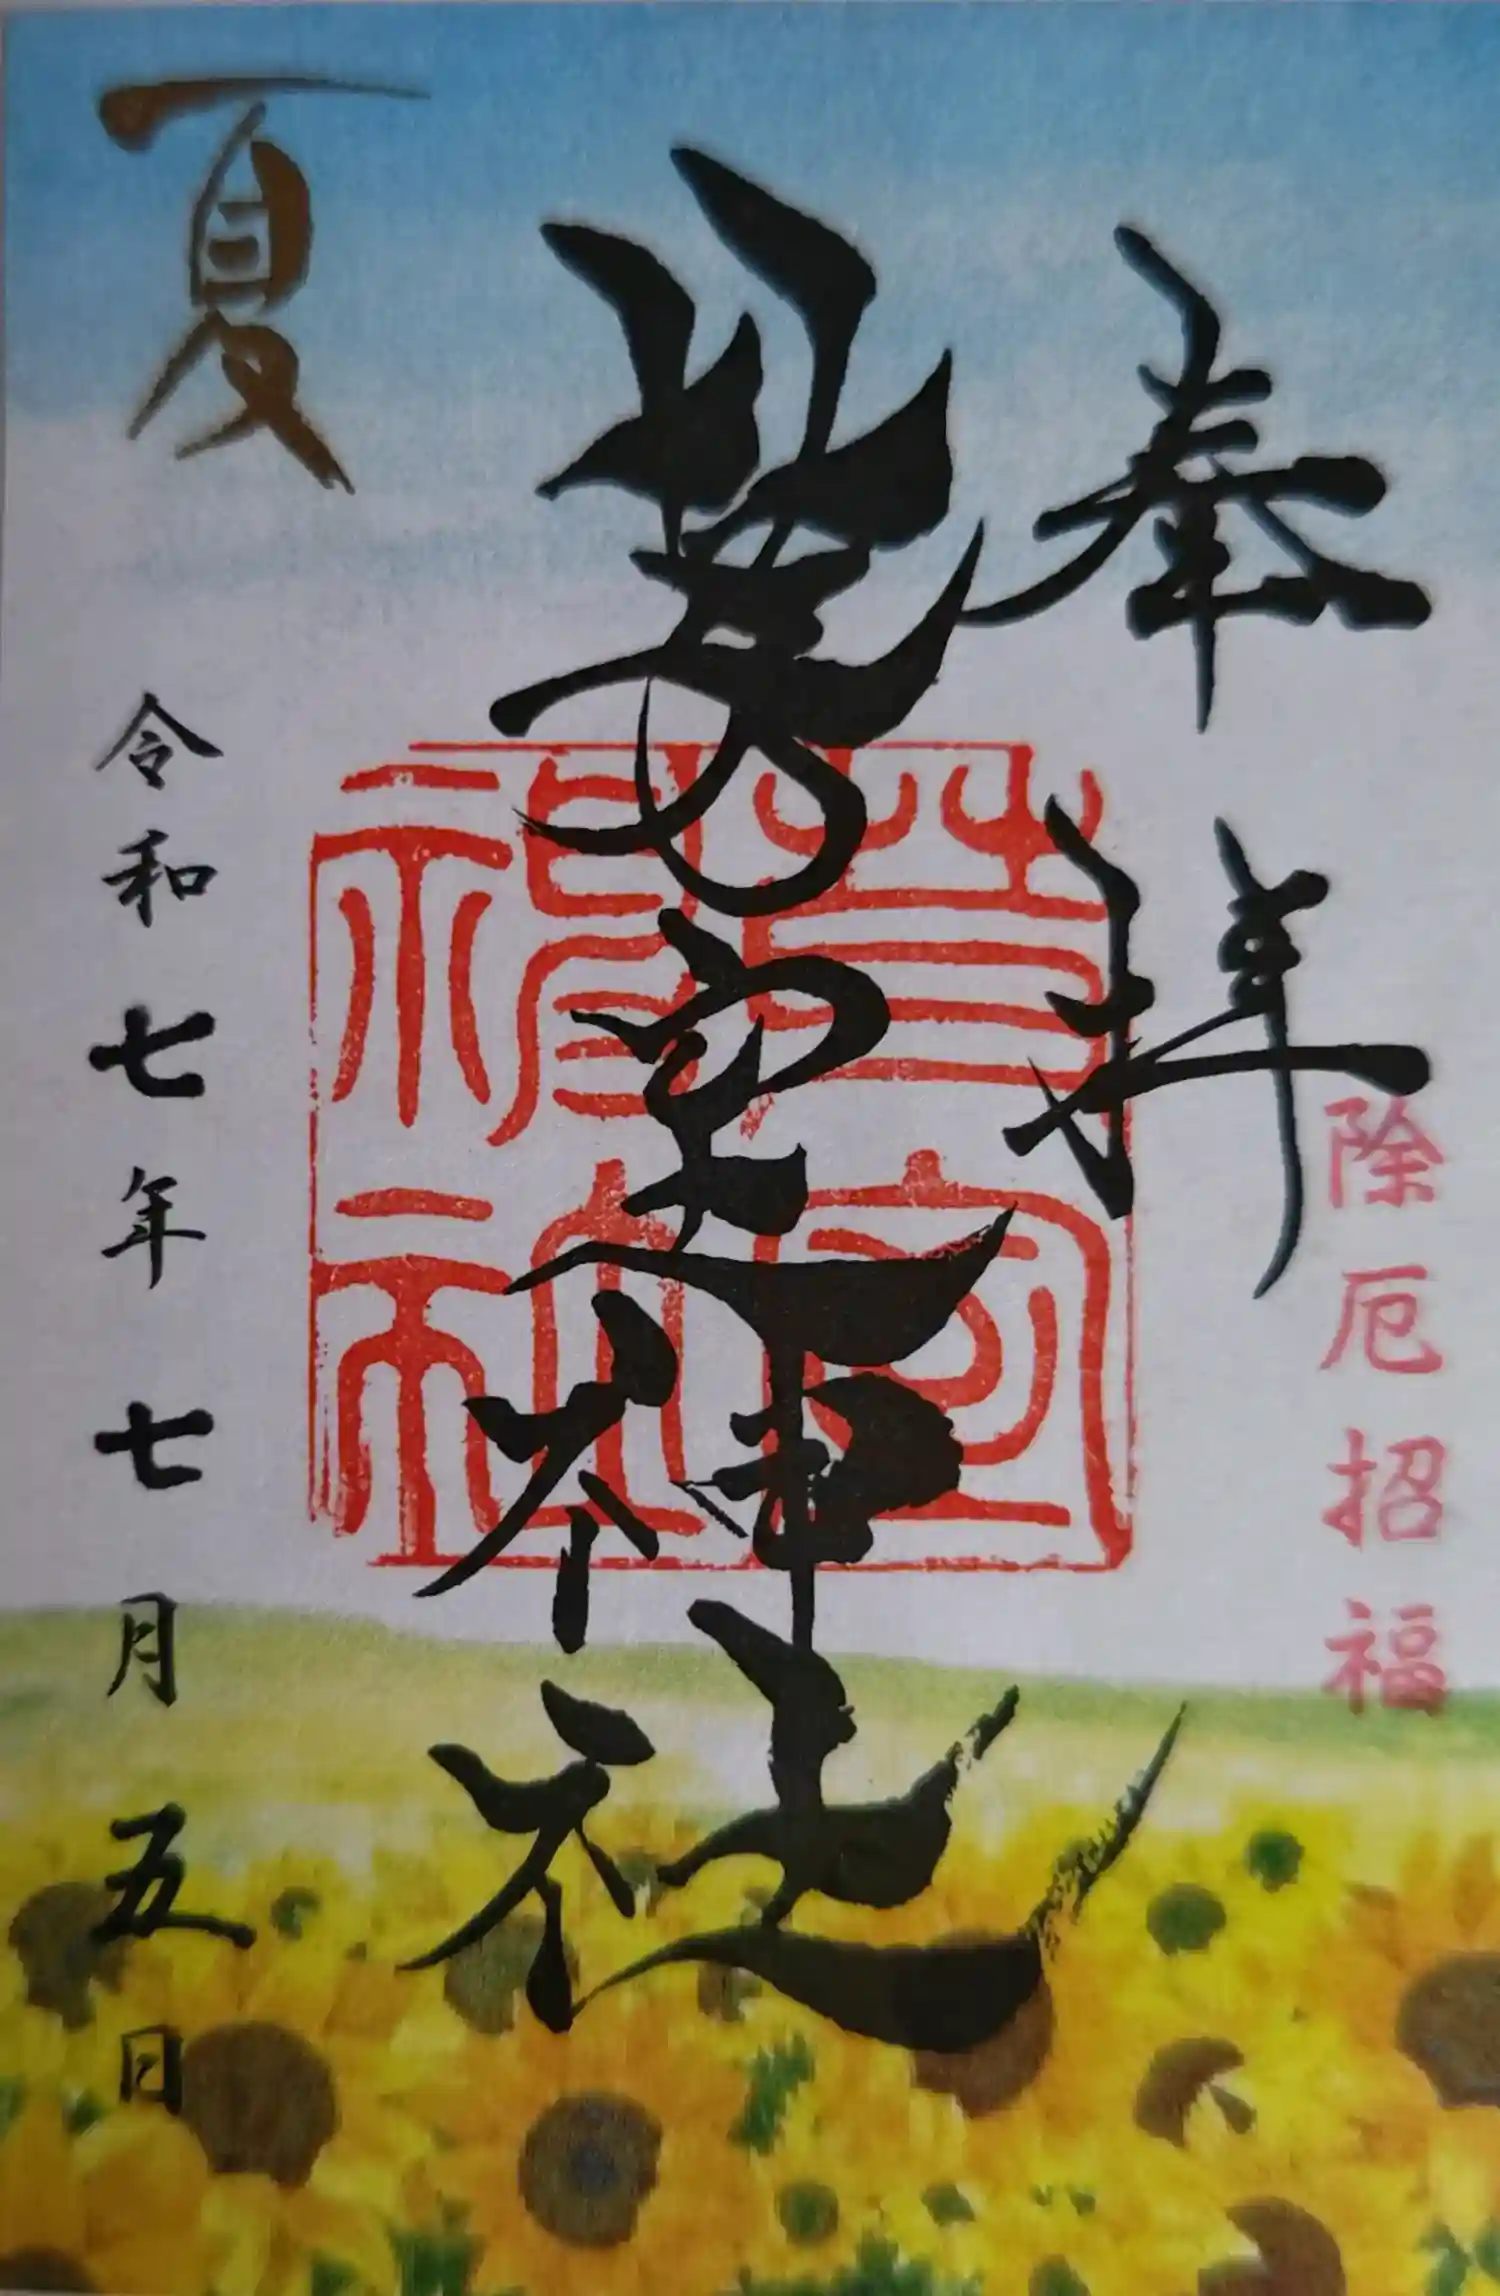 奉拝
除厄招福
神社
夏
令和七年七月五日